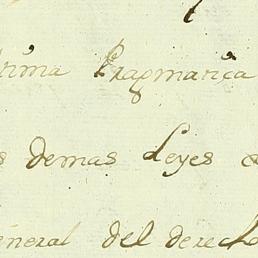 trima Pragmatica
s demas Leyes &
eneral del derecho